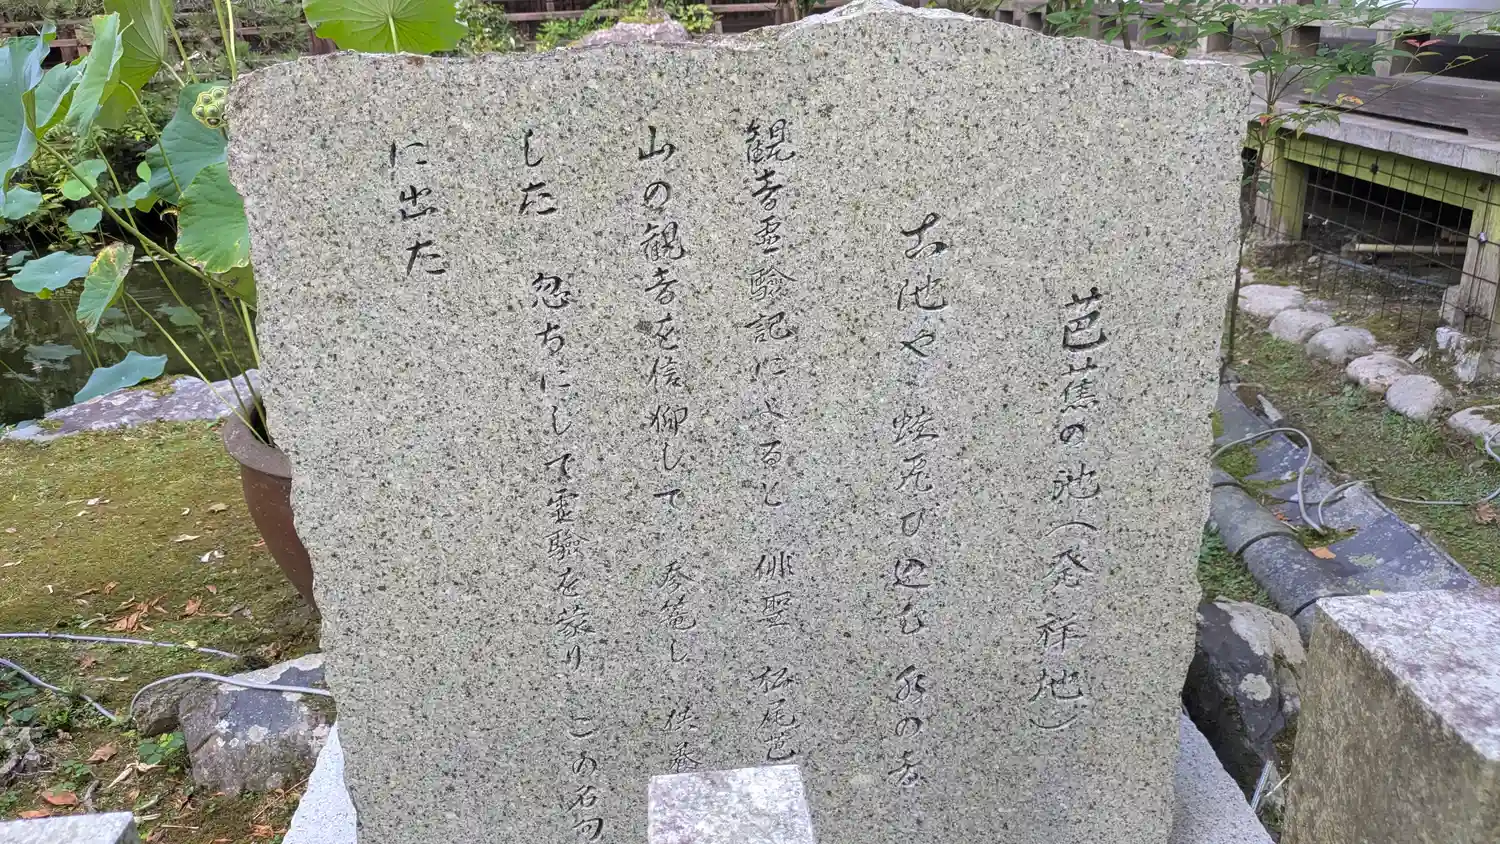 芭蕉の池(発祥地)
古池や 蛙飛び込む 水の音
観音霊験記によると 俳聖 松尾芭
山の観音を信仰して 参篭し 供養
した 忽ちにして霊験を蒙り この名句
に出た